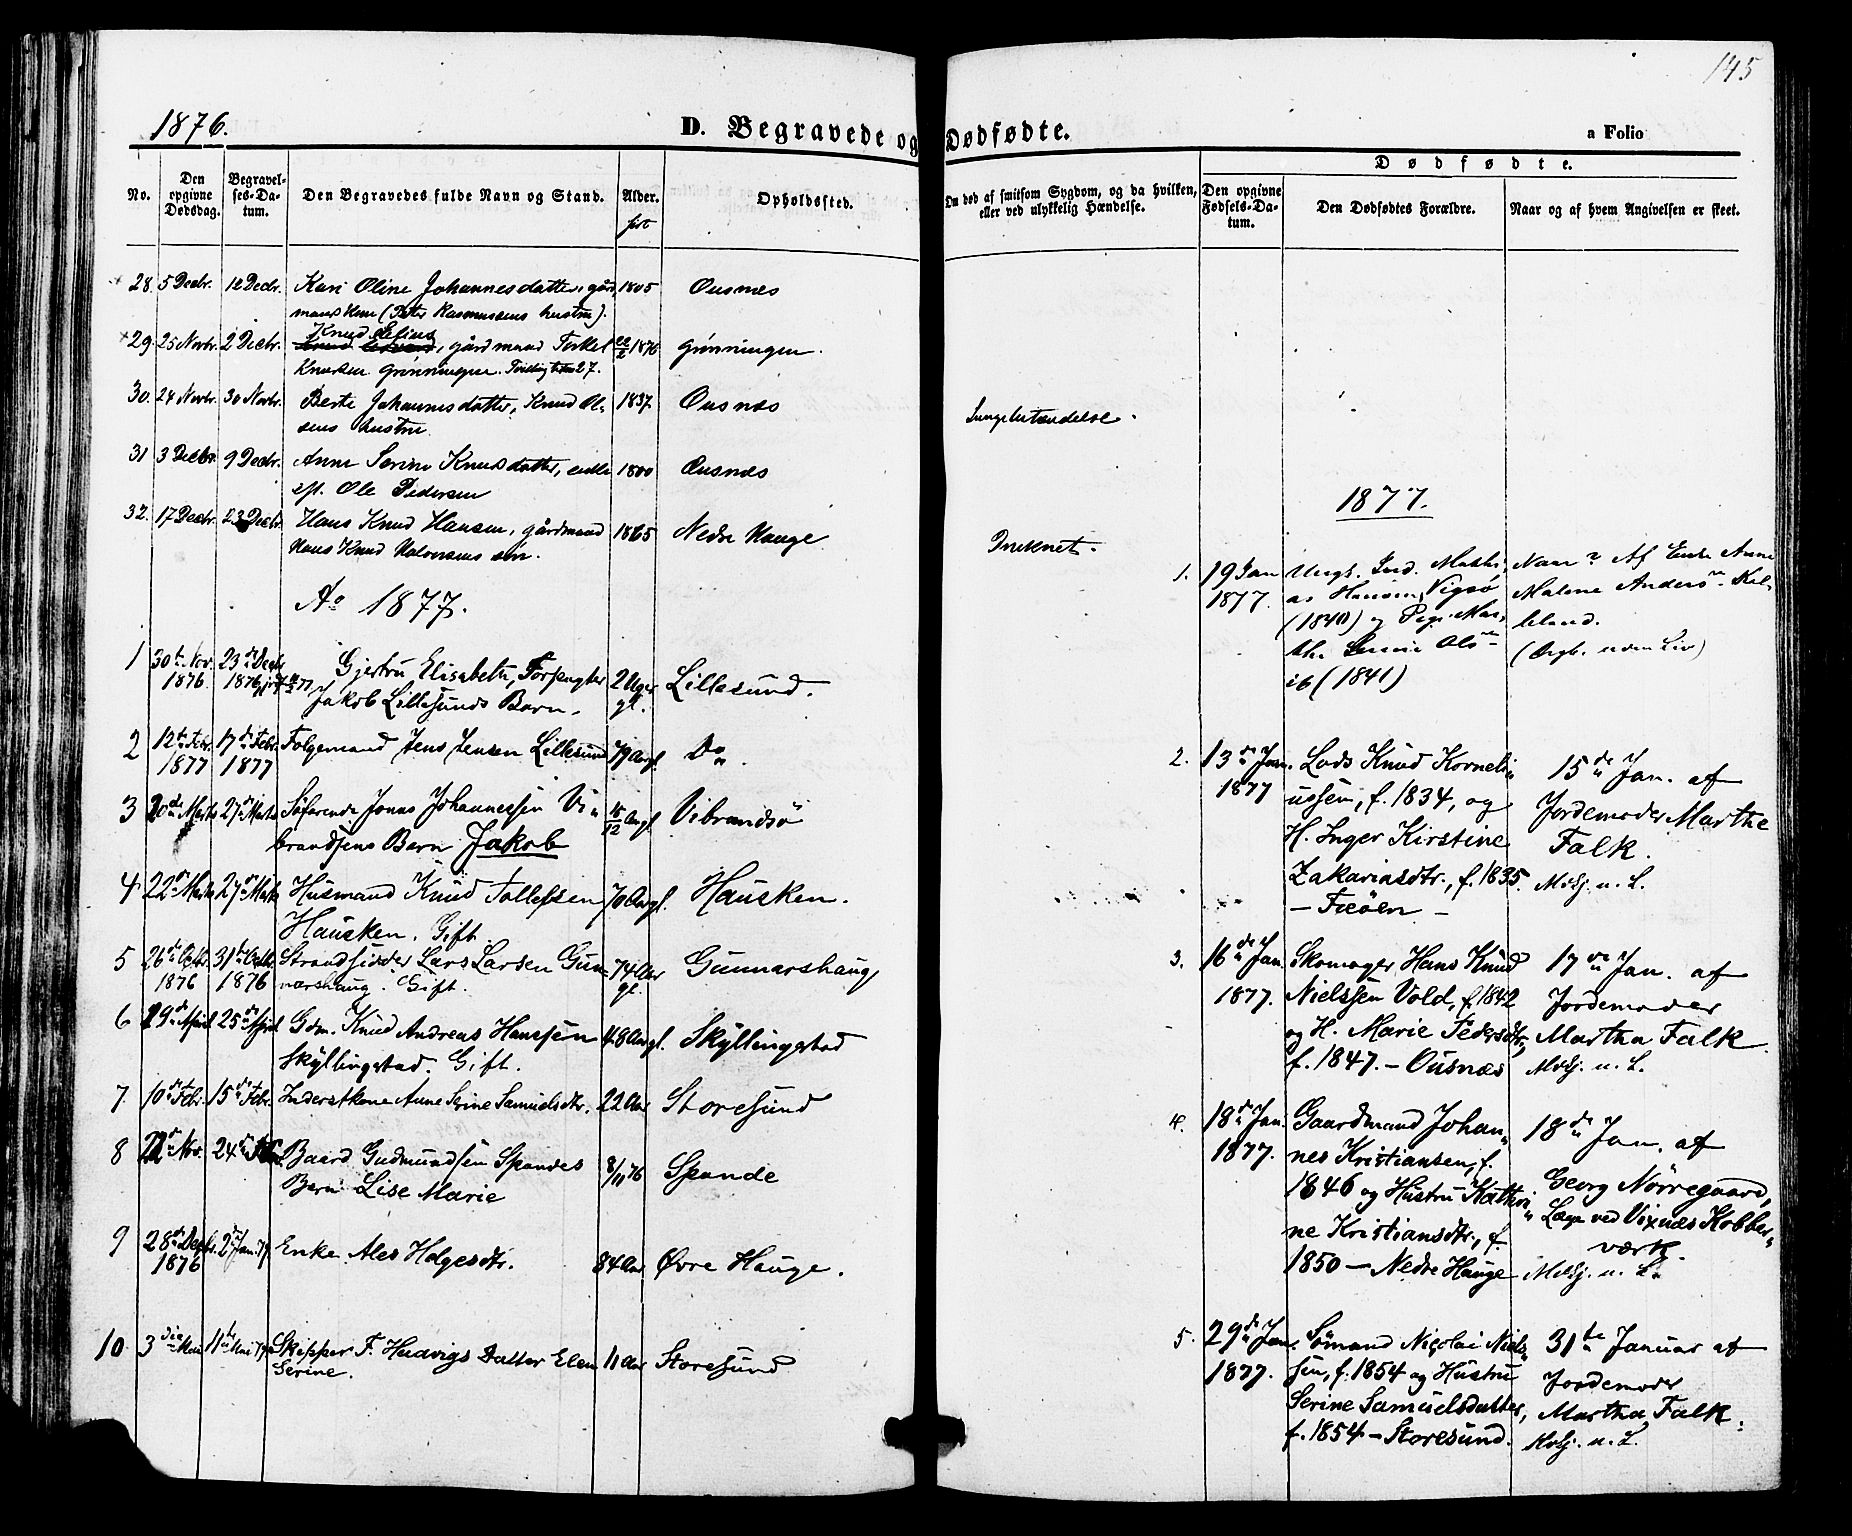 145
1876.
D. Begravede og Dødfødte.
a Folio
No.
Den opgivne Dødsdag.
Begravelses-Datum.
Den Begravedes fulde Navn og Stand.
Alder.
Opholdssted.
Om død af smitsom Sygdom, og da hvilken, eller ved ulykkelig Hændelse.
Dødfødte.
Den opgivne Fødsels-Datum.
Den Dødfødtes Forældre.
Naar og af hvem Angivelsen er skeet.
28. 5 Decbr. 12 Decbr. Kari Oline Johannesdatter, gård 1805 Ousnæs
mands kone (Peter Rasmussens hustru).
Knud Elius
29 25 Novbr. 2 Decbr. gårdmand Torkel 22/2 1876 Grønningen.
Knudsen Grønningen. Tvilling
30. 24 Novbr. 30 Novbr. Berte Johannesdatter, Knud Ol- 1837 Ousnæs Lungebetændelse.
sens hustru.
31 3 Decbr. 9 Decbr. Anne Serine Knudsdatter, enke 1800 Ousnæs
eft. Ole Pedersen
32. 17 Decbr. 23 Decbr. Hans Knud Hansen, gårdmand 1865 Nedre Hauge Druknet.
Hans Knud Halvorsens søn.
Ao 1877.
1 30te Nov. 1876. 23de Decbr 1876 Gjertru Elisabeth, Forpagter 2 Uger gl. Lillesund.
Jakob Lillesunds Barn.
2 12te Febr. 1877 17de Febr. 1877 Følgemand Jens Jensen Lillesund 79 Aar gl. Do.
3 20de Marts 27de Marts Søfarende Jonas Johannessen Vi- Aar gl Vibrandsö
brandsens Barn Jakob
4 22de Marts 27de Marts Husmand Knud Tollefsen 70 Aar gl. Hausken.
Hausken. Gift.
5 26de Octbr. 1876 31de Octbr. 1876 Strandsidder Lars Larsen Gun- 74 Aar gl. Gunnarshaug
narshaug. Gift.
6 29de April 25de April Gdm. Knud Andreas Hanssen 48 Aar gl. Skyllingstad
Skyllingstad. Gift.
7 10de Febr. 15de Febr. Inderstkone Anne Serine Samuelsdtr. 22 Aar Storesund
8 22de Nov. 24de Baard Gudmundsen Spandes 8/11 76 Spande
Barn Lise Marie
9 28de Decbr. 1876 2den Jan. 77 Enke Ales Helgesdtr. 84 Aar Øvre Hauge.
10. 3die Mai 11te Mai Skipper F. Hedvigs Datter Elen 11 Aar Storesund
Serine.
1877.
1. 19 Jan 1877. Ungk. Ind. Mathi-
as Hansen, Vigsø
(1840) og Pige Mar-
the Serine Ols-
(1841)
Naar? Af Enke Anne
Malene Anders
(Ægb. uden Liv)
2. 13de Jan. 1877 Lods Knud Korneli-
ussen, f. 1834, og
H. Inger Kirstine
Zakariasdtr., f. 1835.
– Fæøen –
15de Jan. af
Jordemoder Marthe
Falk.
Mdlj. u. L.
3. 16de Jan. 1877. Skomager Hans Knud
Nielssen Vold, f. 1842
og H. Marie Pedersdtr.,
f. 1847. – Ousnæs
17de Jan. af
Jordemoder
Martha Falk.
Mdlj. u. L.
4. 18de Jan. 1877. Gaardmand Johan-
nes Kristiansen, f.
1846 og Hustru Kathri-
ne Kristiansdtr., f.
1850 – Nedre Hauge
18de Jan. af
Georg Nörregaard,
Læge ved Vixnæs Kobber-
værk.
Mdlj. u. L.
5. 29de Jan. 1877. Sömand Nicolai Niels-
sen, f. 1854 og Hustru
Serine Samuelsdatter,
f. 1854 – Storesund.
31te Januar af
Jordemoder
Martha Falk.
Mdlj. u. L.